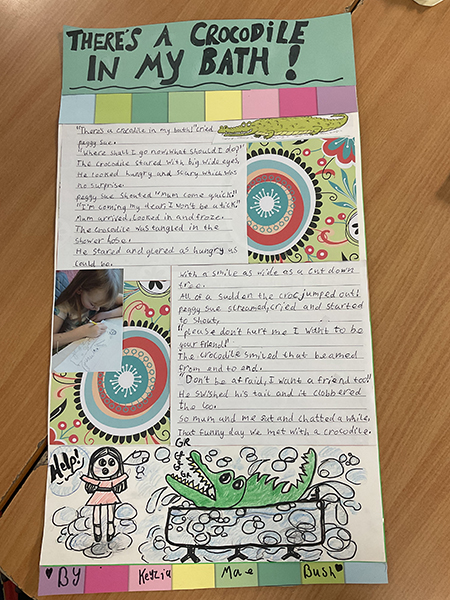 THERE'S A CROCODILE
IN MY BATH!
"There's a crocodile in my bath!" cried
peggy sue.
"Where shall I go now, what should I do?"
The crocodile stared with big wide eyes,
He looked hungry and scary which was
no surprise.
peggy sue shouted "Mum come quick!"
"I'm coming my dear, I won't be a tick."
Mum arrived, Looked in and froze.
The crocodile was tangled in the
shower hose.
He stared and glared as hungry as
could be.
with a smile as wide as a cut down
tree.
All of a sudden the croc jumped out!
peggy sue screamed, cried and started
to shout,
"please don't hurt me I want to be
your friend!"
The crocodile smiled that beamed
from end to end.
"Don't be afraid, I want a friend too!"
He swished his tail and it clobbered
the loo.
So mum and me sat and chatted a while,
That funny day we met with a crocodile.
Help!
BY Keyzia Mae Bush